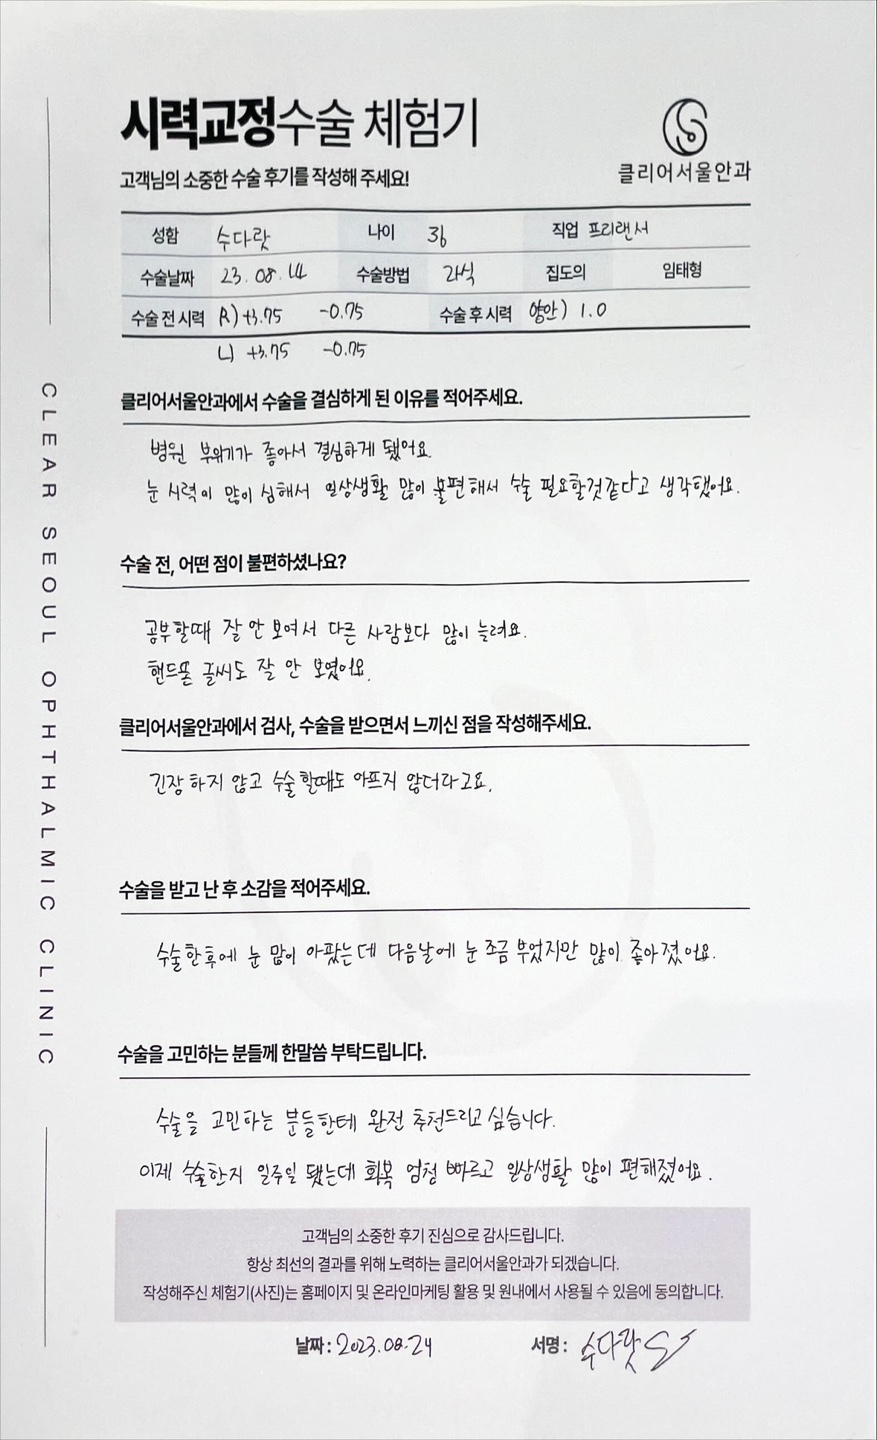 시력교정수술 체험기
고객님의 소중한 수술 후기를 작성해 주세요!
클리어서울안과
성함 수다랏 나이 36 직업 프리랜서
수술날짜 23.08.14 수술방법 라식 집도의 임태형
수술 전 시력 R) +3.75 -0.75 수술 후 시력 양안) 1.0
L) +3.75 -0.75
CLEAR SEOUL OPHTHALMIC CLINIC
클리어서울안과에서 수술을 결심하게 된 이유를 적어주세요.
병원 부위기가 좋아서 결심하게 됐어요.
눈 시력이 많이 심해서 일상생활 많이 불편해서 수술 필요할것같다고 생각했어요.
수술 전, 어떤 점이 불편하셨나요?
공부할때 잘 안 보여서 다른 사람보다 많이 늘려요.
핸드폰 글씨도 잘 안 보였어요.
클리어서울안과에서 검사, 수술을 받으면서 느끼신 점을 작성해주세요.
긴장하지 않고 수술할때도 아프지 않더라고요.
수술을 받고 난 후 소감을 적어주세요.
수술한후에 눈 많이 아팠는데 다음날에 눈 조금 부었지만 많이 좋아졌어요.
수술을 고민하는 분들께 한말씀 부탁드립니다.
수술을 고민하는 분들한테 완전 추천드리고 싶습니다.
이제 수술한지 일주일 됐는데 회복 엄청 빠르고 일상생활 많이 편해졌어요.
고객님의 소중한 후기 진심으로 감사드립니다.
항상 최선의 결과를 위해 노력하는 클리어서울안과가 되겠습니다.
작성해주신 체험기(사진)는 홈페이지 및 온라인마케팅 활용 및 원내에서 사용될 수 있음에 동의합니다.
날짜 : 2023.08.24 서명 : 수다랏